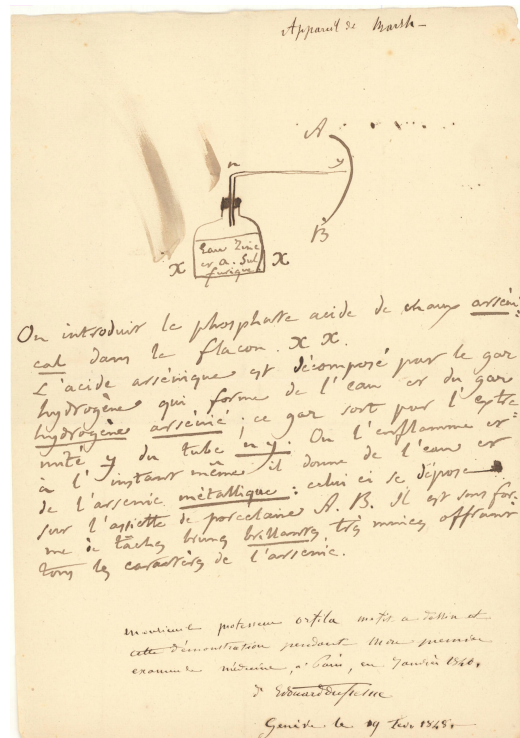 Appareil de Marsh
A
n y
B
Eau Zinc
et a. Sul
furique
x x
On introduit le phosphate acide de chaux arséni=
cal dans le flacon. x x.
L'acide arsénique est décomposé par le gaz
hydrogène qui forme de l'eau et du gaz
hydrogène arsénié; ce gaz sort par l'extré=
mité y du tube n y. On l'enflamme et
à l'instant même il donne de l'eau et
de l'arsenic métallique: celui ci se dépose
sur l'assiette de porcelaine A. B. Il est sous for
me de taches brunes brillantes, très minces offrant
tous les caractères de l'arsenic.
Monsieur le professeur orfila m'fit a dessin et
cette démonstration pendant mon premier
examen de médecine, a Paris, en Janvier 1840.
Dr Edouard
Genève le 19 1848.